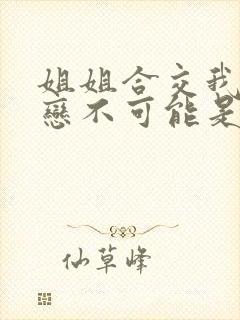 姐姐合交我
戀不可能是
仙草峰